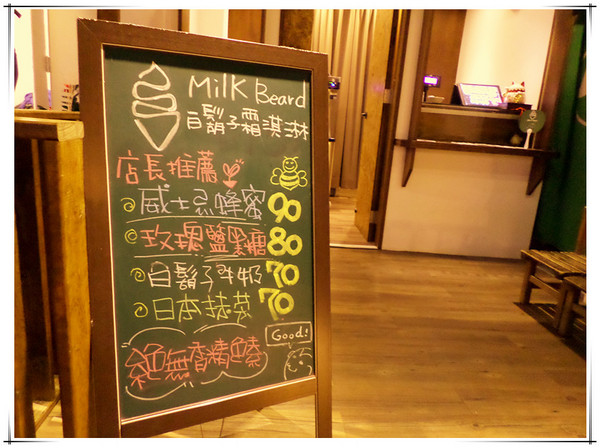 Milk Beard
白鬍子霜淇淋
店長推薦
威士忌蜂蜜 90
玫瑰鹽黑糖 80
白鬍子牛奶 70
日本抹茶 70
Good!
絕無香精色素